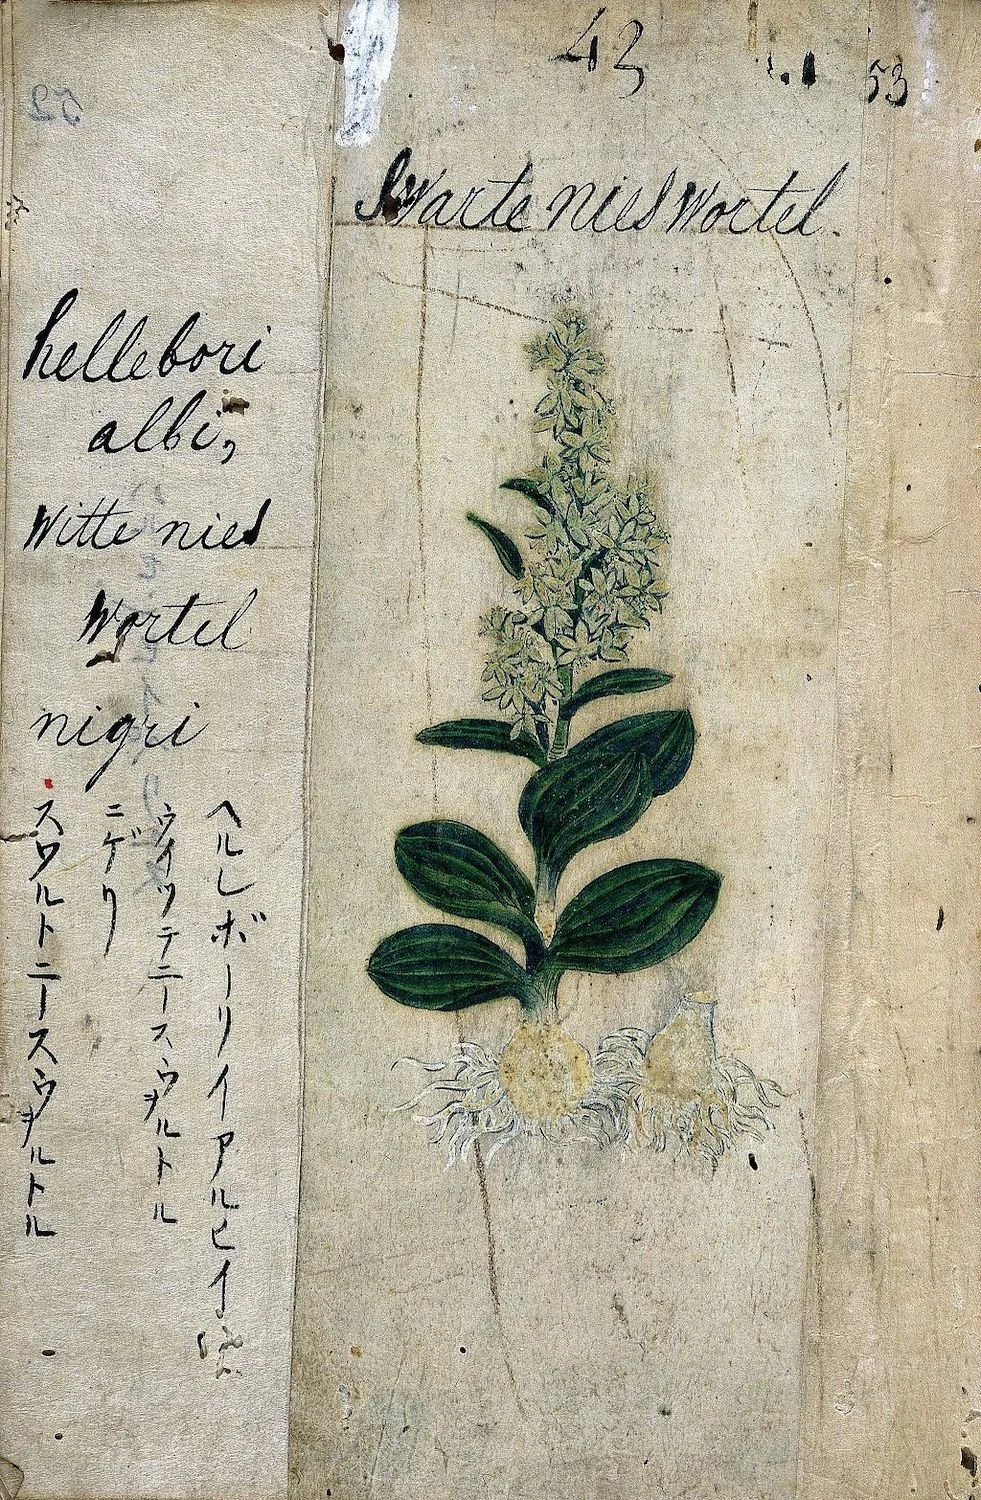 43
53
52
Swarte nies Wortel.
hellebori
albi,
Witte nies
Wortel
nigri
ヘルレボーリイアルビイ
ウイッテニースウヲルトル
ニゲリ
スワルトニースウヲルトル